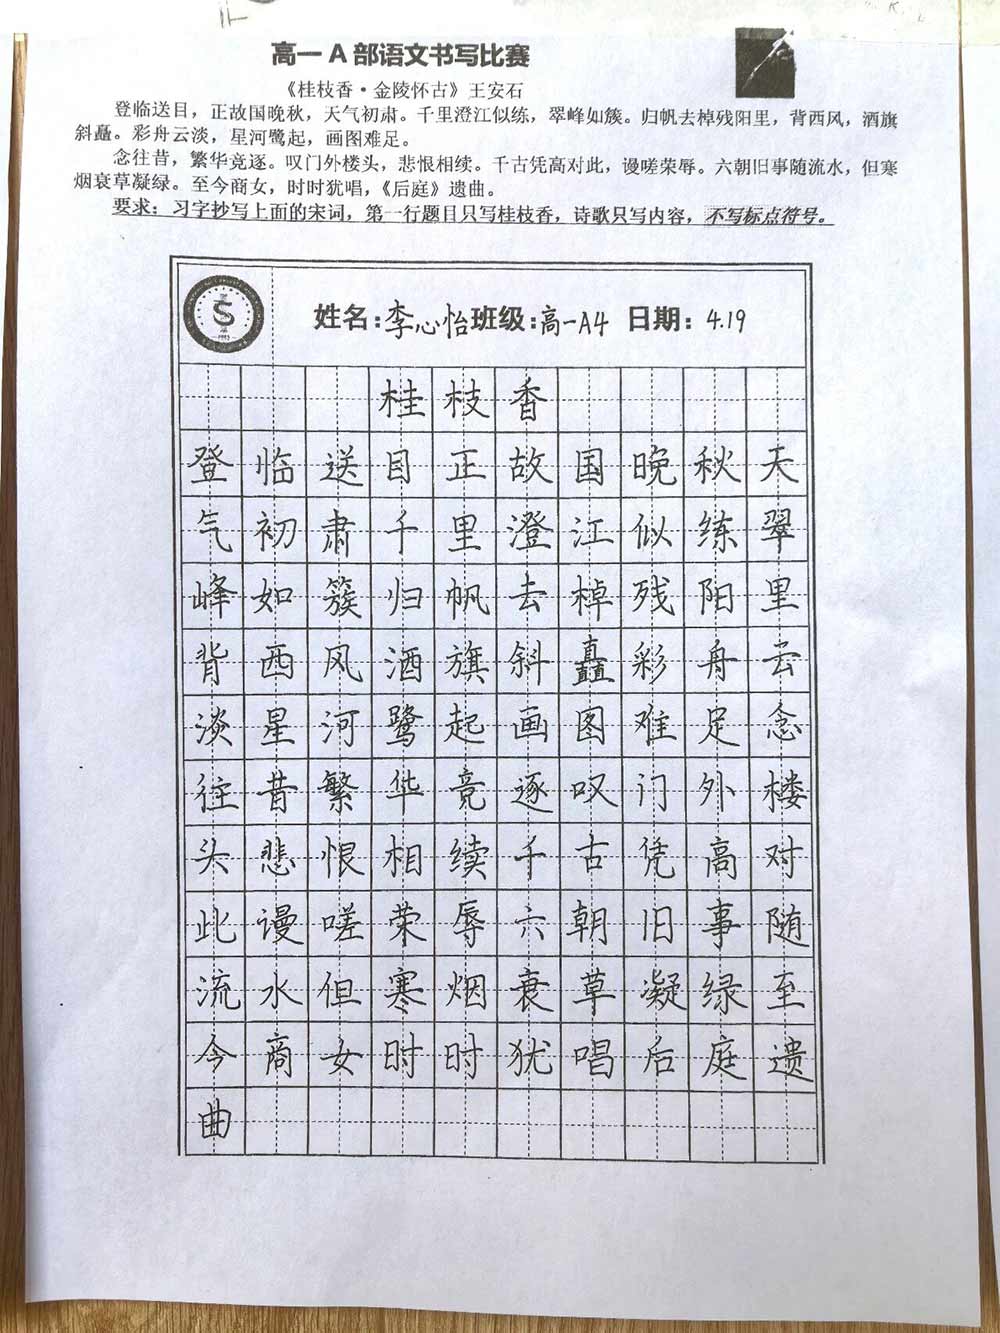 高一 A 部语文书写比赛
《桂枝香·金陵怀古》王安石
登临送目，正故国晚秋，天气初肃。千里澄江似练，翠峰如簇。归帆去棹残阳里，背西风，酒旗
斜矗。彩舟云淡，星河鹭起，画图难足。
念往昔，繁华竞逐。叹门外楼头，悲恨相续。千古凭高对此，谩嗟荣辱。六朝旧事随流水，但寒
烟衰草凝绿。至今商女，时时犹唱，《后庭》遗曲。
要求：习字抄写上面的宋词，第一行题目只写桂枝香，诗歌只写内容，不写标点符号。
姓名：李心怡班级：高一A4 日期：4.19
桂枝香
登临送目正故国晚秋天
气初肃千里澄江似练翠
峰如簇归帆去棹残阳里
背西风酒旗斜矗彩舟云
淡星河鹭起画图难足念
往昔繁华竞逐叹门外楼
头悲恨相续千古凭高对
此谩嗟荣辱六朝旧事随
流水但寒烟衰草凝绿至
今商女时时犹唱后庭遗
曲